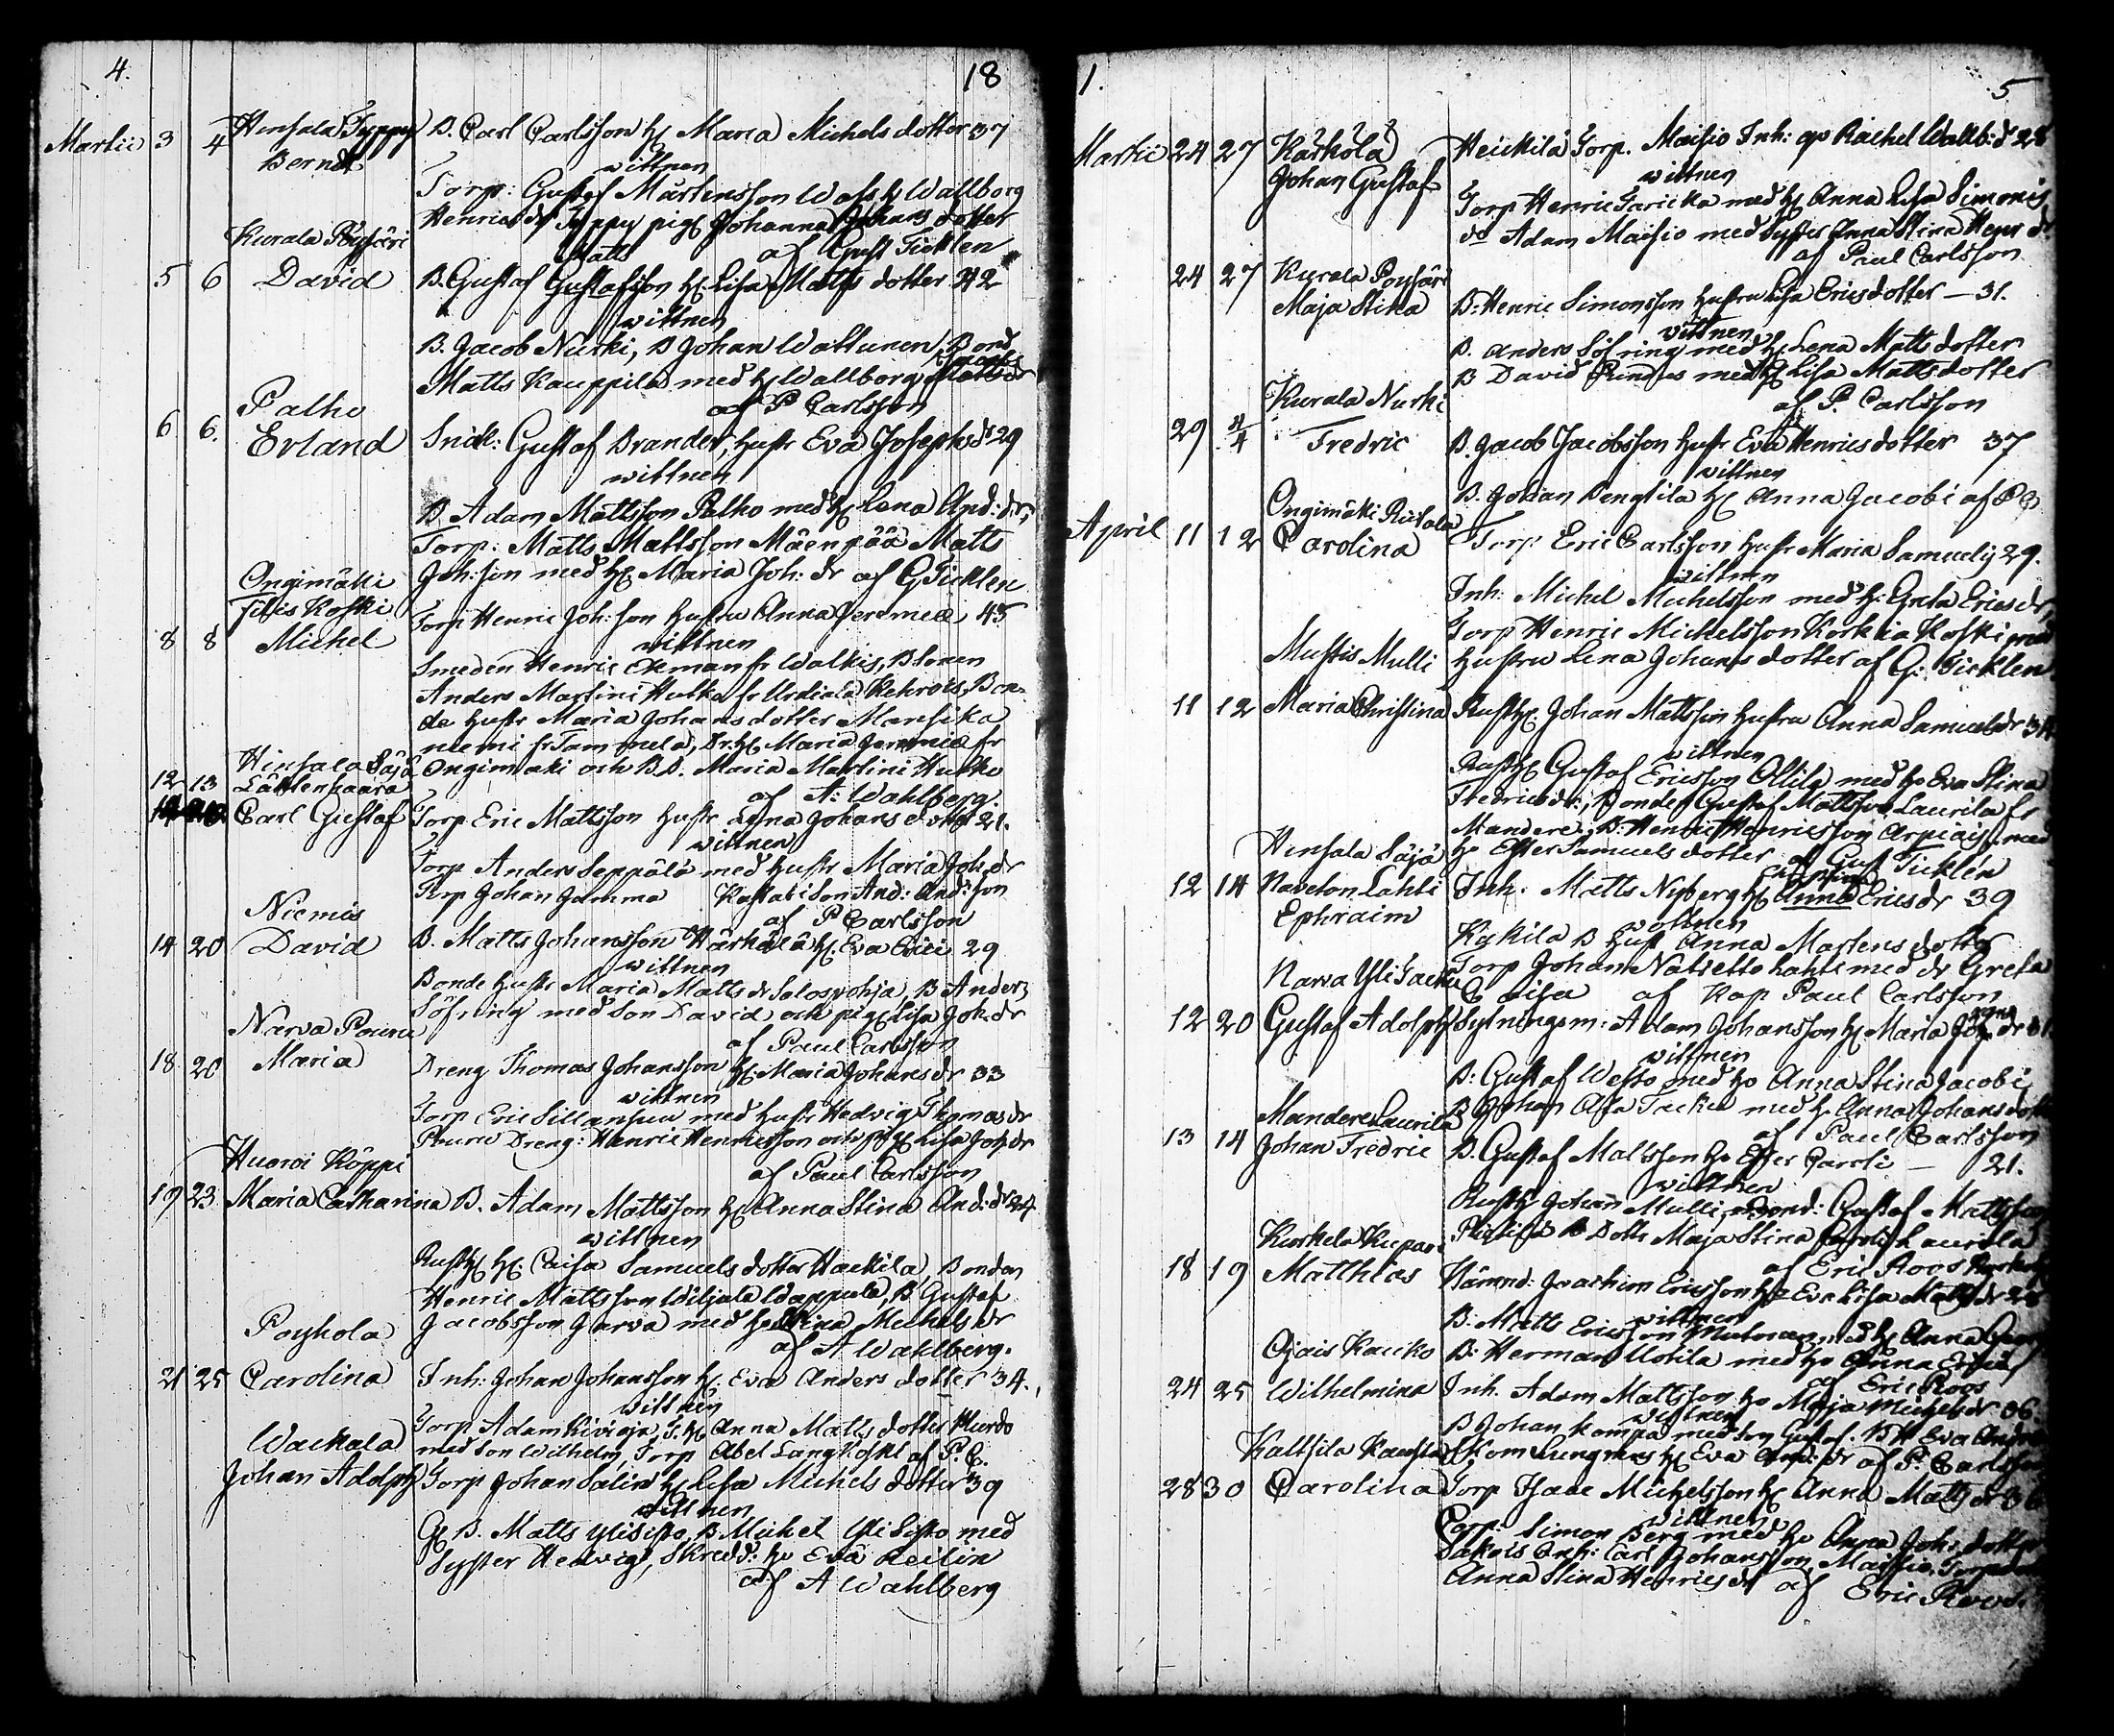 4.
18
Martii 3 4 Hinsala Typpy B. Carl Carlsson hƷ Maria Michels dotter 37
Berndt
wittnen
Torp: Gustaf Mårtensson Wass h Wallborg
Henrics dr Typpy pigƷ Johanna Johans dotter
af Gust Ticklen
Kurala Pöysäri
5 6 David B. Gustaf Gustafsson hƷ Lisa Matts dotter 42
wittnen
B. Jacob Nurki, B Johan Wattunen, Bond
Matts Kauppila med hƷ Wallborg Matts dr
af P Carlsson
Palho
6 6. Erland Snick: Gustaf Brander, hustr Eva Josephs dr 29
wittnen
B Adam Mattsson Palho med hƷ Lena And: dr,
Torp: Matts Mattsson Mäenpää Matts
Joh:son med hƷ Maria Joh: dr af G Ticklen
Ongimäki
Filis Koski
8 8 Michel Torp Henric Joh:son hustru Anna Jeremiæ 45
wittnen
Smeden Henric Ekman fr Walkis, B Sonen
Anders Martini Hutka fr Urdiala Kehrois, Bon-
de hustr Maria Johans dotter Mansika
niemi fr Tammela, Dr. hƷ Maria Jeremiæ fr
Ongimäki och B.D. Maria Martini Hutko
af A: Wahlberg.
Hinsala Säjä
12 13 Lähtenhaara
Carl Gustaf Torp Eric Mattsson hustr Lena Johans dotter 21.
wittnen
Torp Anders Seppälä med hustr Maria Joh: dr
Torp Johan Jamma And: And:son
af P Carlsson
Niemis
14 20 David B. Matts Johansson Härkälä hƷ. Eva Erici 29
wittnen
Bonde hustr Maria Matts dr Solospohja, B Anders
Söfring med son David och pigƷ Lisa Joh: dr
af Paul Carlsson
Narva Pouru
18. 20 Maria Dreng Thomas Johansson hƷ Maria Johans dr 33
wittnen
Torp Eric Sillansuu med hustr Hedvig Thomas dr
Pouru Dreng: Henric Henricsson och pigƷ Lisa Joh: dr
af Paul Carlsson
Huoroi Köppi
19 23 Maria Catharina B. Adam Mattsson hƷ Anna Stina And: dr 24
wittnen
RusthƷ hƷ. Caisa Samuels dotter Haekila, Bonden
Henric Mattsson Wiljala Wappula, B Gustaf
Jacobsson Jarva med ho Stina Michels dr
af A Wahlberg.
Poyhola
21 25 Carolina Inh: Johan Johansson hƷ. Eva Anders dotter 34.
wittnen
Torp Adam Kivioja, T. hƷ Anna Matts dotter
med son Wilhelm, Torp Abel Langkoski af P. C.
Wackala
Johan Adolph Torp Johan Salin hƷ Lisa Michels dotter 39
wittnen
B. Matts Ylisipo, B Michel Yli Sisto med
Syster Hedvig, Skredd: ho Eva Reilin
af A Wahlberg
1.
5
Martii 24 27 Karkola Heickilä Torp. Maisio Inh: qv Rachel Wallb: dr 28
Johan Gustaf
wittnen
Torp Henric med hƷ Anna Lisa Simonis
do Adam Maisio med Syster Anna Stina Henr dr
af Paul Carlsson
24 27 Kurala Poysäri
Maja Stina B: Henric Simonsson hustru Lisa Erics dotter — 31.
wittnen
B. Anders Söfring med hƷ Lena Matts dotter
B David med hƷ Lisa Matts dotter
af P. Carlsson
Kurala Nurki
29 4/4 Fredric B. Jacob Jacobsson hustr Eva Henrics dotter 37
wittnen
B. Johan Bengtila hƷ Anna Jacobi af P C
Ongimäki
April 11 12 Carolina Torp Eric Carlsson hustr Maria Samuelis 29.
wittnen
Inh: Michel Michelsson med h: Greta Erics dr,
Torp Henric Michelsson Korkia Koski med
hustru Lena Johans dotter af G: Ticklen
Mustis Mulli
11 12 Maria Christina RusthƷ. Johan Mattsson hustru Anna Samuels dr
wittnen
RusthƷ Gustaf Ericsson Ollila med ho Eva Stina
Fredrics dr:, Bonden Gustaf Mattsson Laurila fr
Mandere, B: Henric Henricsson Arpiais, med
ho Ester Samuels dotter af Gust Ticklén
Hinsala Säjä
12 14 Naveton Lahti Inh: Matts Nyberg hƷ Anna Erics dr 39
Ephraim
wittnen
B hust Anna Martens dotter
Torp Johan med dr Greta
Caisa af Kap Paul Carlsson
Narva Yli
12 20 Gustaf Adolph Sytningsm: Adam Johansson hƷ Maria dr
wittnen
B: Gustaf Wesso med ho Anna Stina Jacobi
B Johan med ho Anna Johans dotter
af Paul Carlsson
Mandere Laurila
13 14 Johan Fredric B. Gustaf Mattsson ho Ester Caroli — 21.
wittnen
RusthƷ Johan Mulli, Bond: Gustaf Mattsson
Dottr Maja Stina Laurila
af Eric Roos
Kurkela Kupari
18 19 Matthias Hämnd: Joachim Ericsson ho Eva Lisa Matts dr 28
wittnen
B. Matts Ericsson med hƷ Anna
B: Herman Uotila med ho Anna
af Eric Roos
Ojais Kauko
24 25 Wilhelmina Inh. Adam Mattsson ho Maja Michels dr 36.
wittnen
B Johan Kempa med son Gustaf. B h Eva
Skom Lungren hƷ Eva And: dr af P. Carlsson
Kaltsila
28 30 Carolina Torp Isaac Michelsson hƷ Anna Matts dr
wittnen
Torp: Simon Berg med ho Anna Joh: dotter
Inh: Carl Johansson, Maisio, Torp
Anna Stina Henrics dr af Eric Roos.